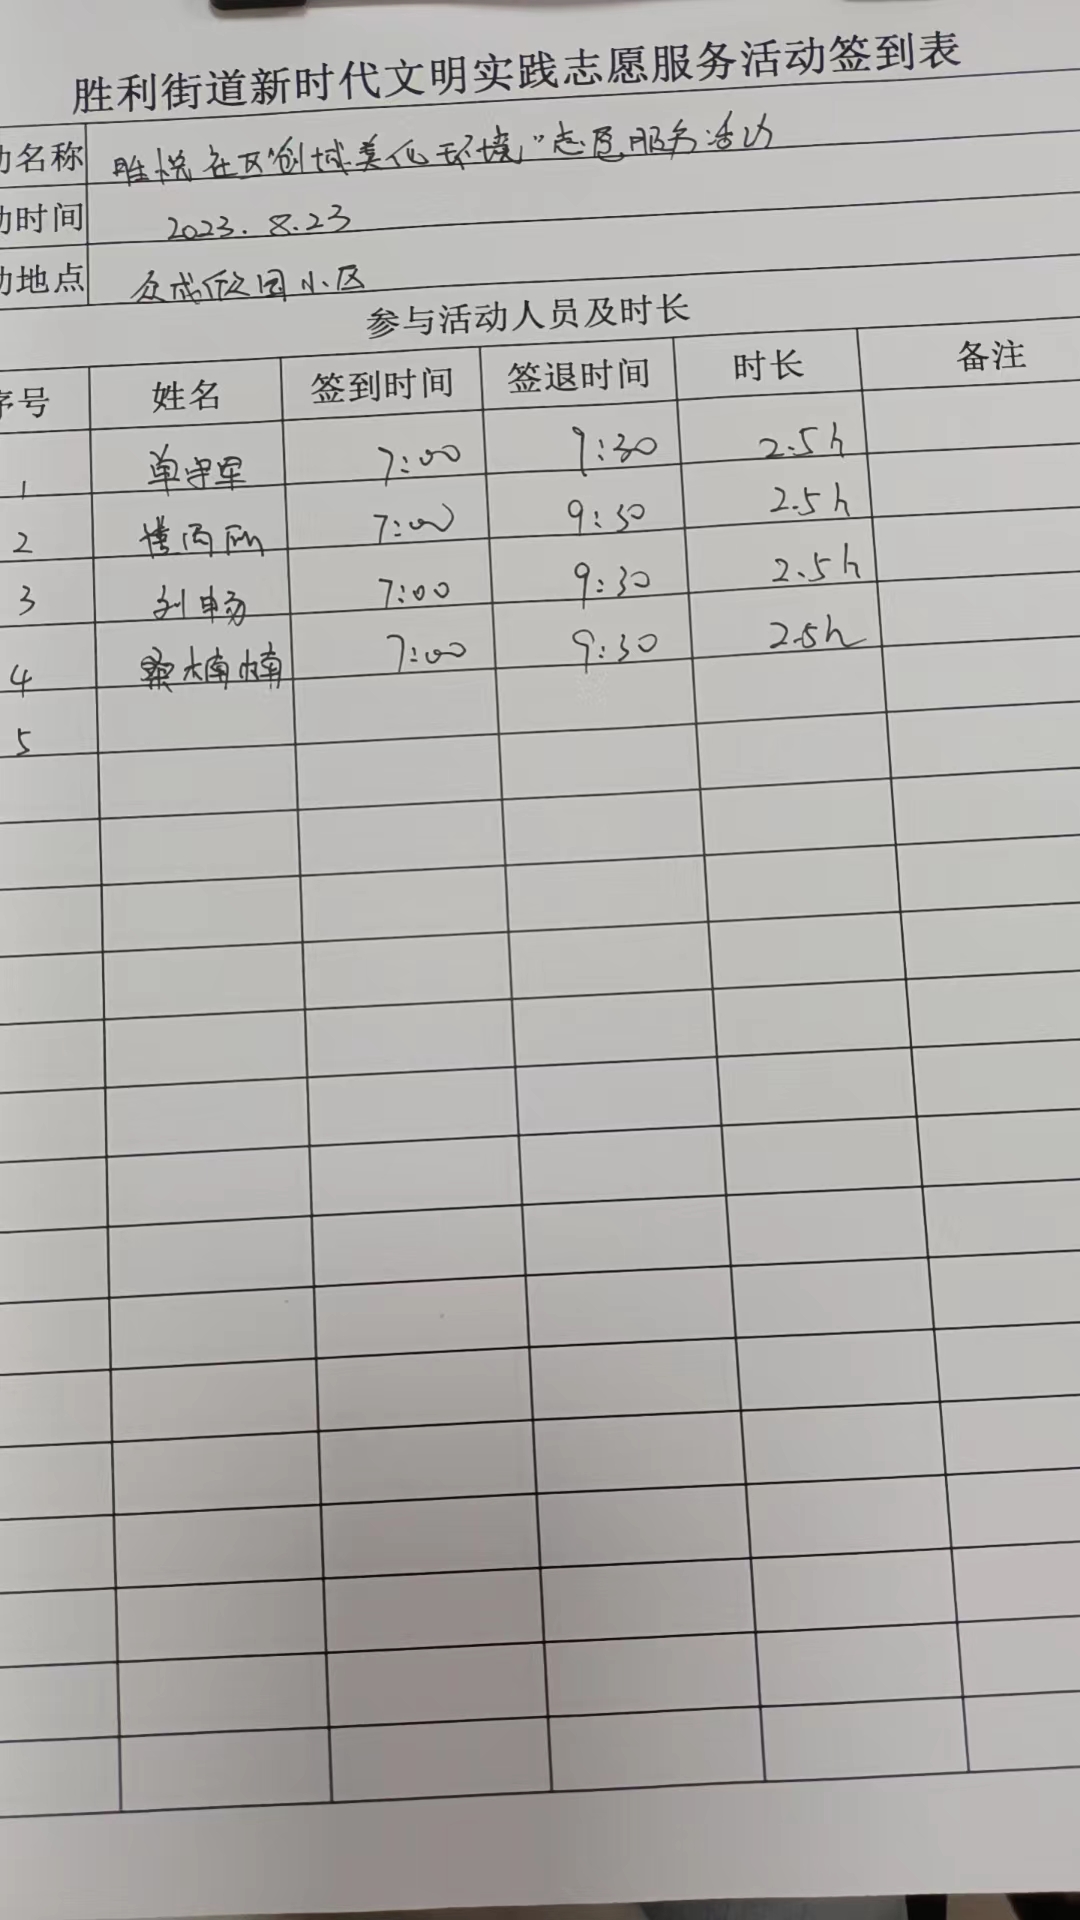 胜利街道新时代文明实践志愿服务活动签到表
动名称 胜悦社区"创城美化环境"志愿服务活动
动时间 2023.8.23
动地点 众成欣园小区
参与活动人员及时长
序号 姓名 签到时间 签退时间 时长 备注
1 单守军 7:00 9:30 2.5h
2 7:00 9:30 2.5h
3 刘畅 7:00 9:30 2.5h
4 桑楠楠 7:00 9:30 2.5h
5